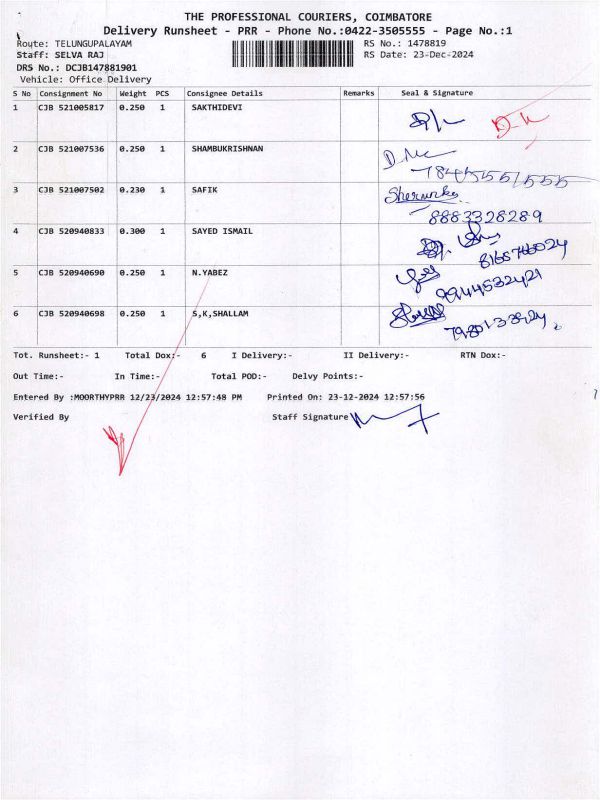 THE PROFESSIONAL COURIERS, COIMBATORE
Delivery Runsheet - PRR - Phone No.:0422-3505555 - Page No.:1
Route: TELUNGUPALAYAM RS No.: 1478819
Staff: SELVA RAJ RS Date: 23-Dec-2024
DRS No.: DCJB147881901
Vehicle: Office Delivery
S No Consignment No Weight PCS Consignee Details Remarks Seal & Signature
1 CJB 521005817 0.250 1 SAKTHIDEVI
2 CJB 521007536 0.250 1 SHAMBUKRISHNAN
3 CJB 521007502 0.230 1 SAFIK
8883328289
4 CJB 520940833 0.300 1 SAYED ISMAIL
5 CJB 520940690 0.250 1 N.YABEZ
9944532421
6 CJB 520940698 0.250 1 S,K,SHALLAM
Tot. Runsheet:- 1 Total Dox:- 6 I Delivery:- II Delivery:- RTN Dox:-
Out Time:- In Time:- Total POD:- Delvy Points:-
Entered By :MOORTHYPRR 12/23/2024 12:57:48 PM Printed On: 23-12-2024 12:57:56
Verified By Staff Signature